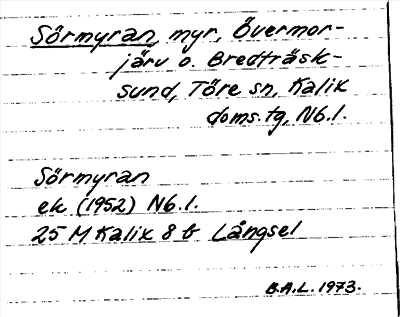 Sörmyran, myr, Övermor-
järv o. Bredträsk-
sund, Töre sn, Kalix
doms.tg, Nb.l.
Sörmyran
ek (1952) Nb.l.
25 M Kalix 8 b Långsel
B.A.L. 1973.